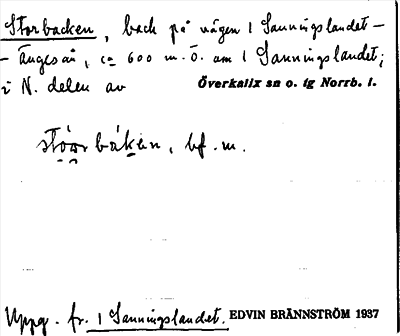 Storbacken, back på vägen 1 Sanningslandet –
– Ängesån, ca 600 m. Ö. om 1 Sanningslandet;
i N. delen av Överkalix sn o. tg Norrb. l.
stóàr báken, bf. m.
Uppg. fr. 1 Sanningslandet. EDVIN BRÄNNSTRÖM 1937